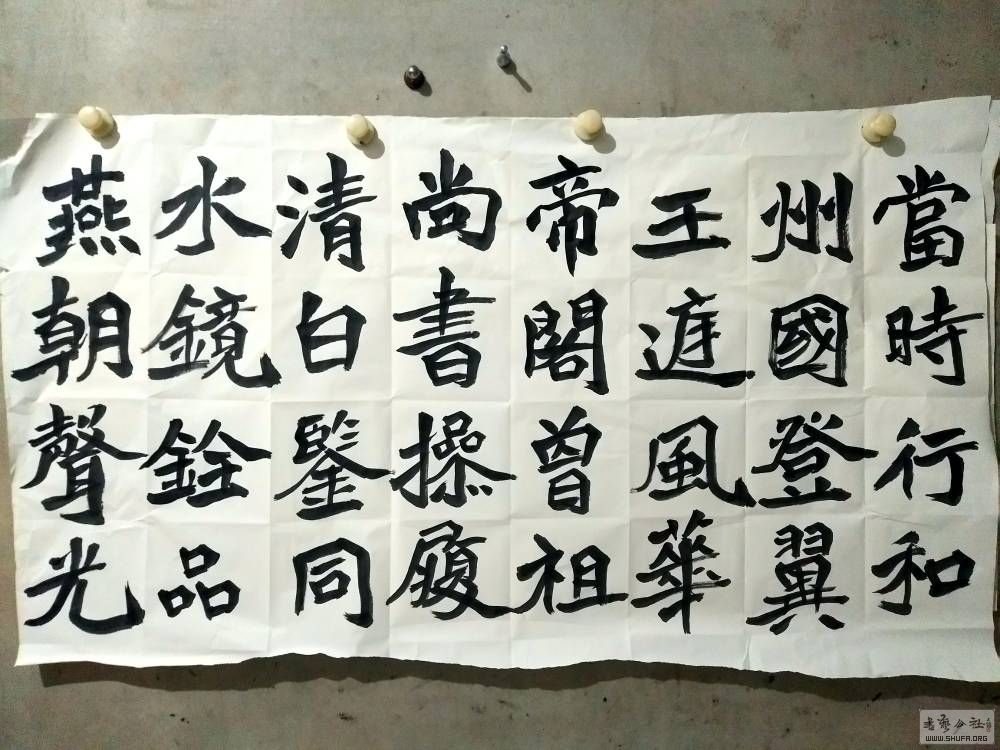 當時行和
州國登翼
王遊風華
帝閣曾祖
尚書操履
清白鑒同
水鏡銓品
燕朝聲光
書藝公社
WWW.SHUFA.ORG